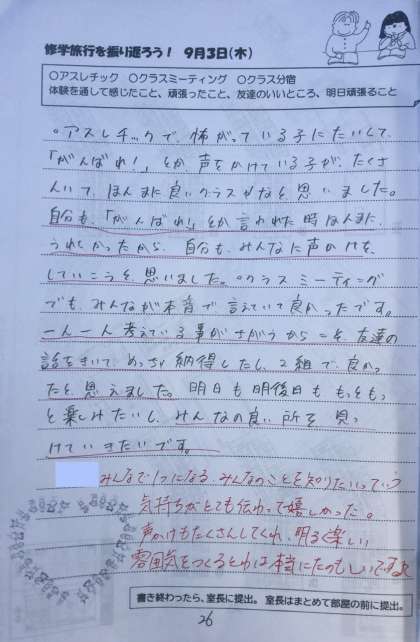 修学旅行を振り返ろう！ 9月3日(木)
○アスレチック ○クラスミーティング ○クラス分宿
体験を通して感じたこと、頑張ったこと、友達のいいところ、明日頑張ること
。アスレチックで、怖がっている子にたいして、
「がんばれ！」とか、声をかけている子が、たくさ
んいて、ほんまに良いクラスやなと思いました。
自分も、「がんばれ！」とか言われた時ほんまに、
うれしかったから、自分も、みんなに声かけを、
していこうと、思いました。。クラスミーティング
でも、みんなが本音で、言えていて良かったです。
一人一人考えている事がちがうからこそ、友達の
話をきいて、めっちゃ納得したし、2組で、良かっ
たと、思えました。明日も明後日も、もっともっ
と楽しみたいし、みんなの良い所を見つ
けていきたいです。
みんなで1つになる、みんなのことを知りたいっていう
気持ちがとても伝わって嬉しかった。
声かけもたくさんしてくれ、明るく楽しい
雰囲気をつくるとわは本当にたのもしいですよ
書き終わったら、室長に提出。室長はまとめて部屋の前に提出。
26